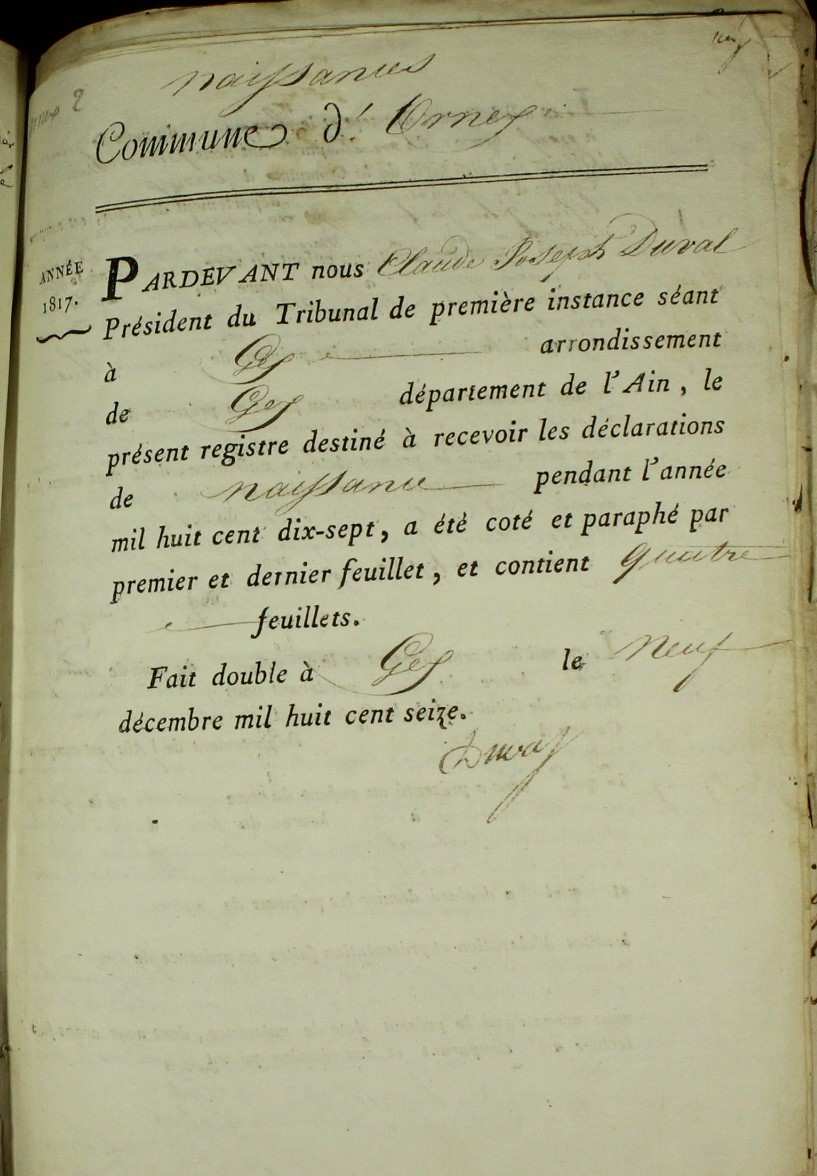 naissances
Commune d'Ornex
ANNÉE
1817.
PARDEVANT nous Claude Joseph Duval
Président du Tribunal de première instance séant
à Gex arrondissement
de Gex département de l'Ain, le
présent registre destiné à recevoir les déclarations
de naissance pendant l'année
mil huit cent dix-sept, a été coté et paraphé par
premier et dernier feuillet, et contient quatre
feuillets.
Fait double à Gex le neuf
décembre mil huit cent seize.
Duval